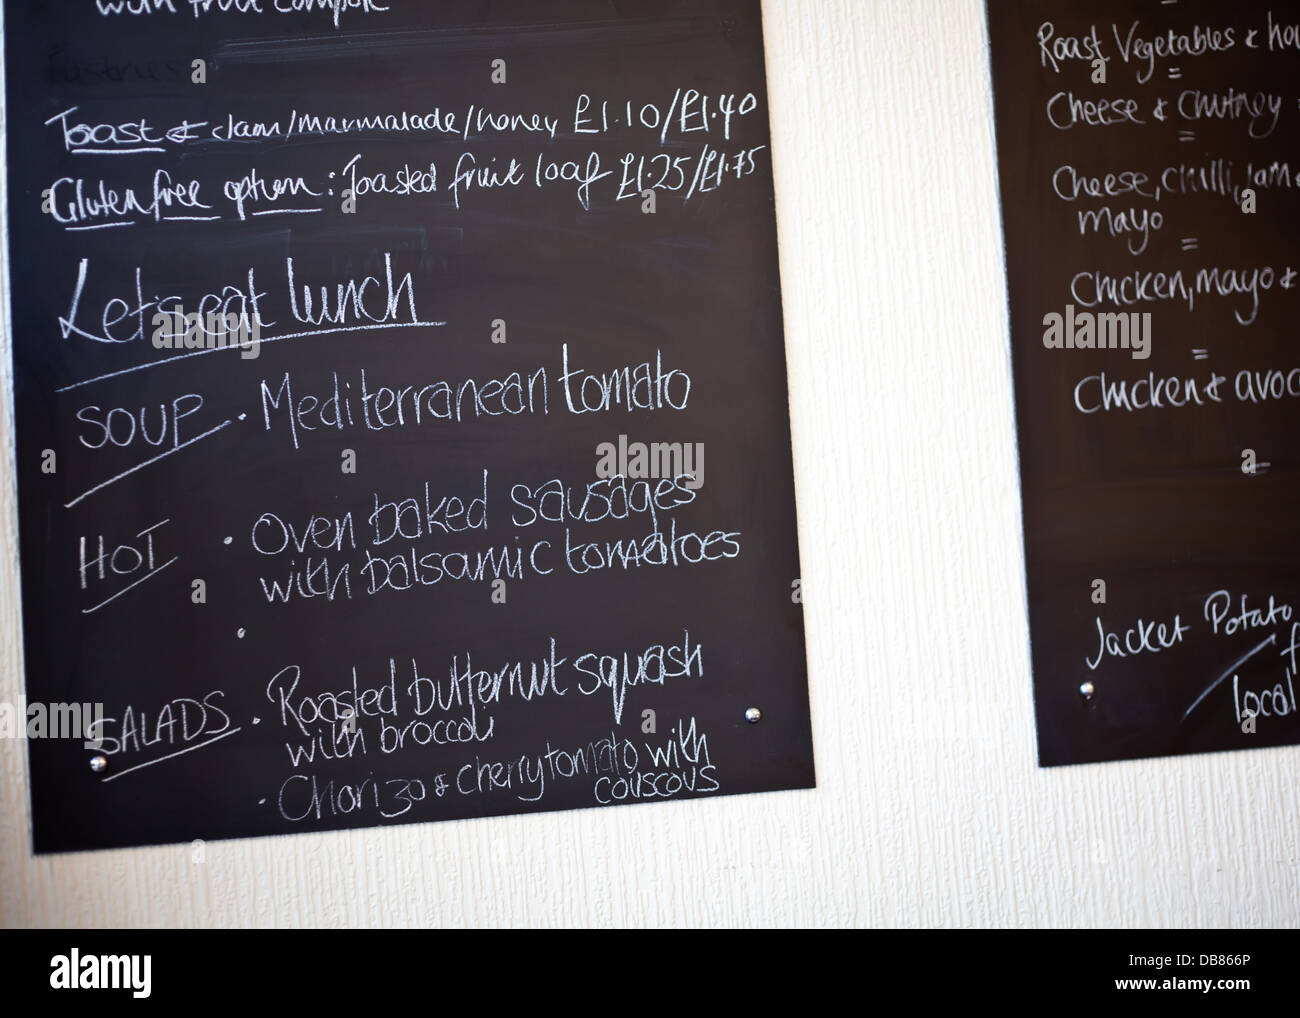 with fruit compote
Pastries
Toast & Jam/marmalade/honey £1.10/£1.40
Gluten free option: Toasted fruit loaf £1.25/£1.75
Let's eat lunch
SOUP · Mediterranean tomato
HOT · Oven baked sausages
with balsamic tomatoes
·
SALADS · Roasted butternut squash
with broccoli
· Chorizo & cherry tomato with
couscous
Roast Vegetables &
=
Cheese & Chutney
=
Cheese, chilli, jam &
mayo
=
Chicken, mayo &
=
Chicken &
=
Jacket Potato
local
alamy stock photo
DB866P
www.alamy.com